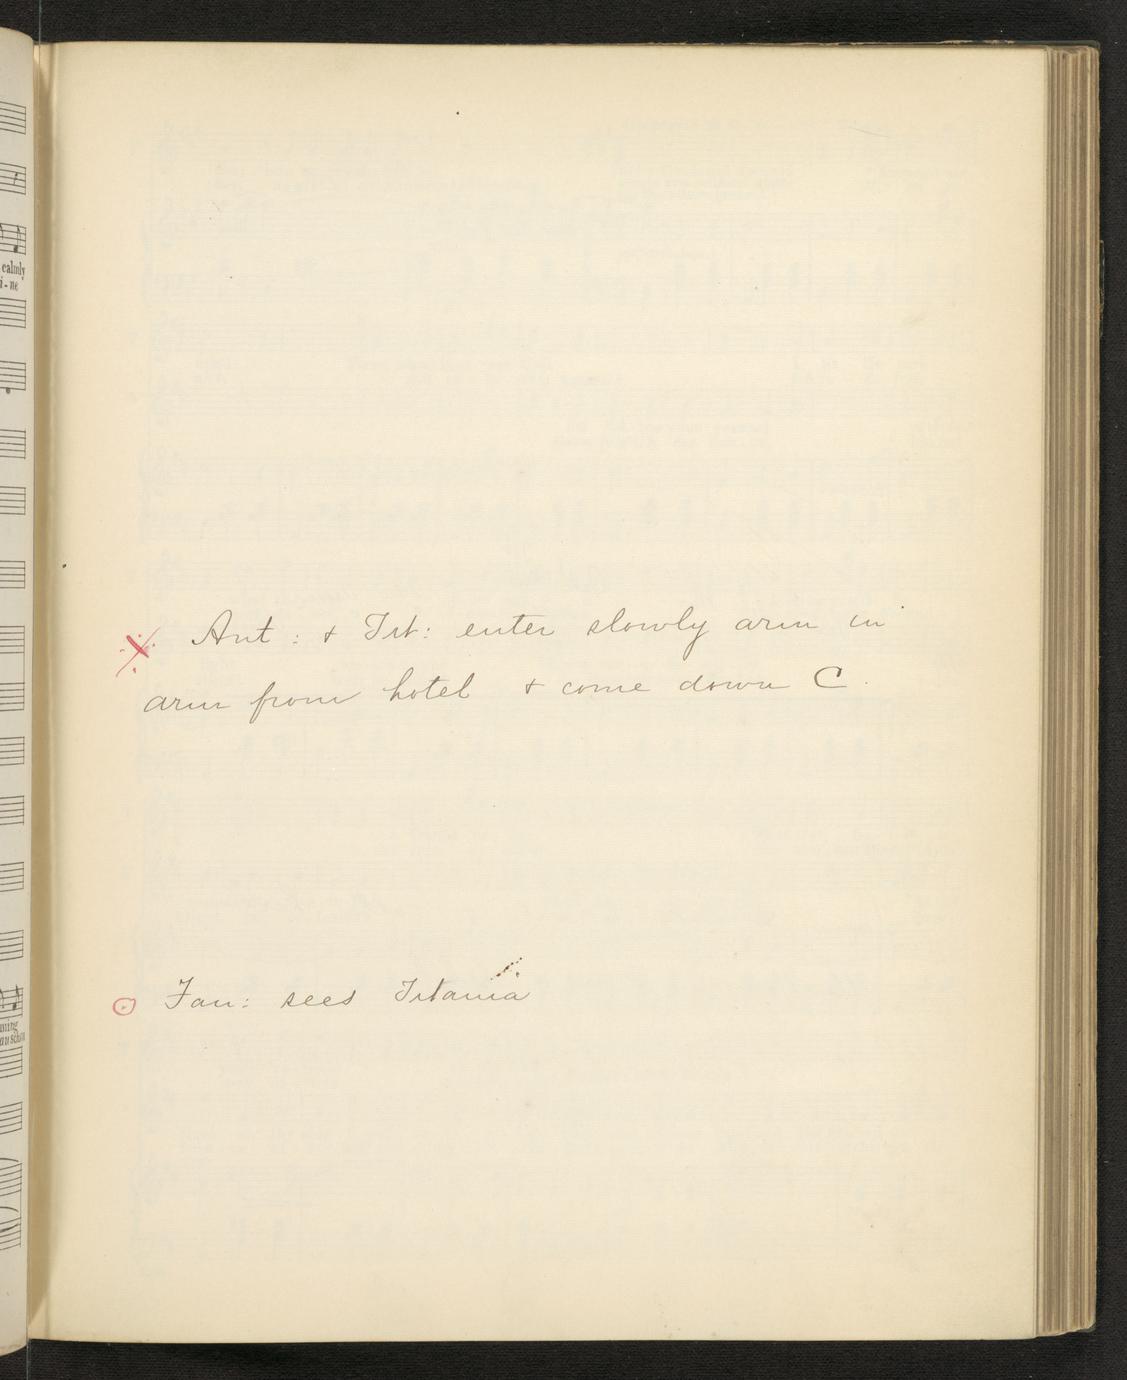 calmly
i-ne
Ant: & Tit: enter slowly arm in
arm from hotel & come down C.
Fan: sees Titania